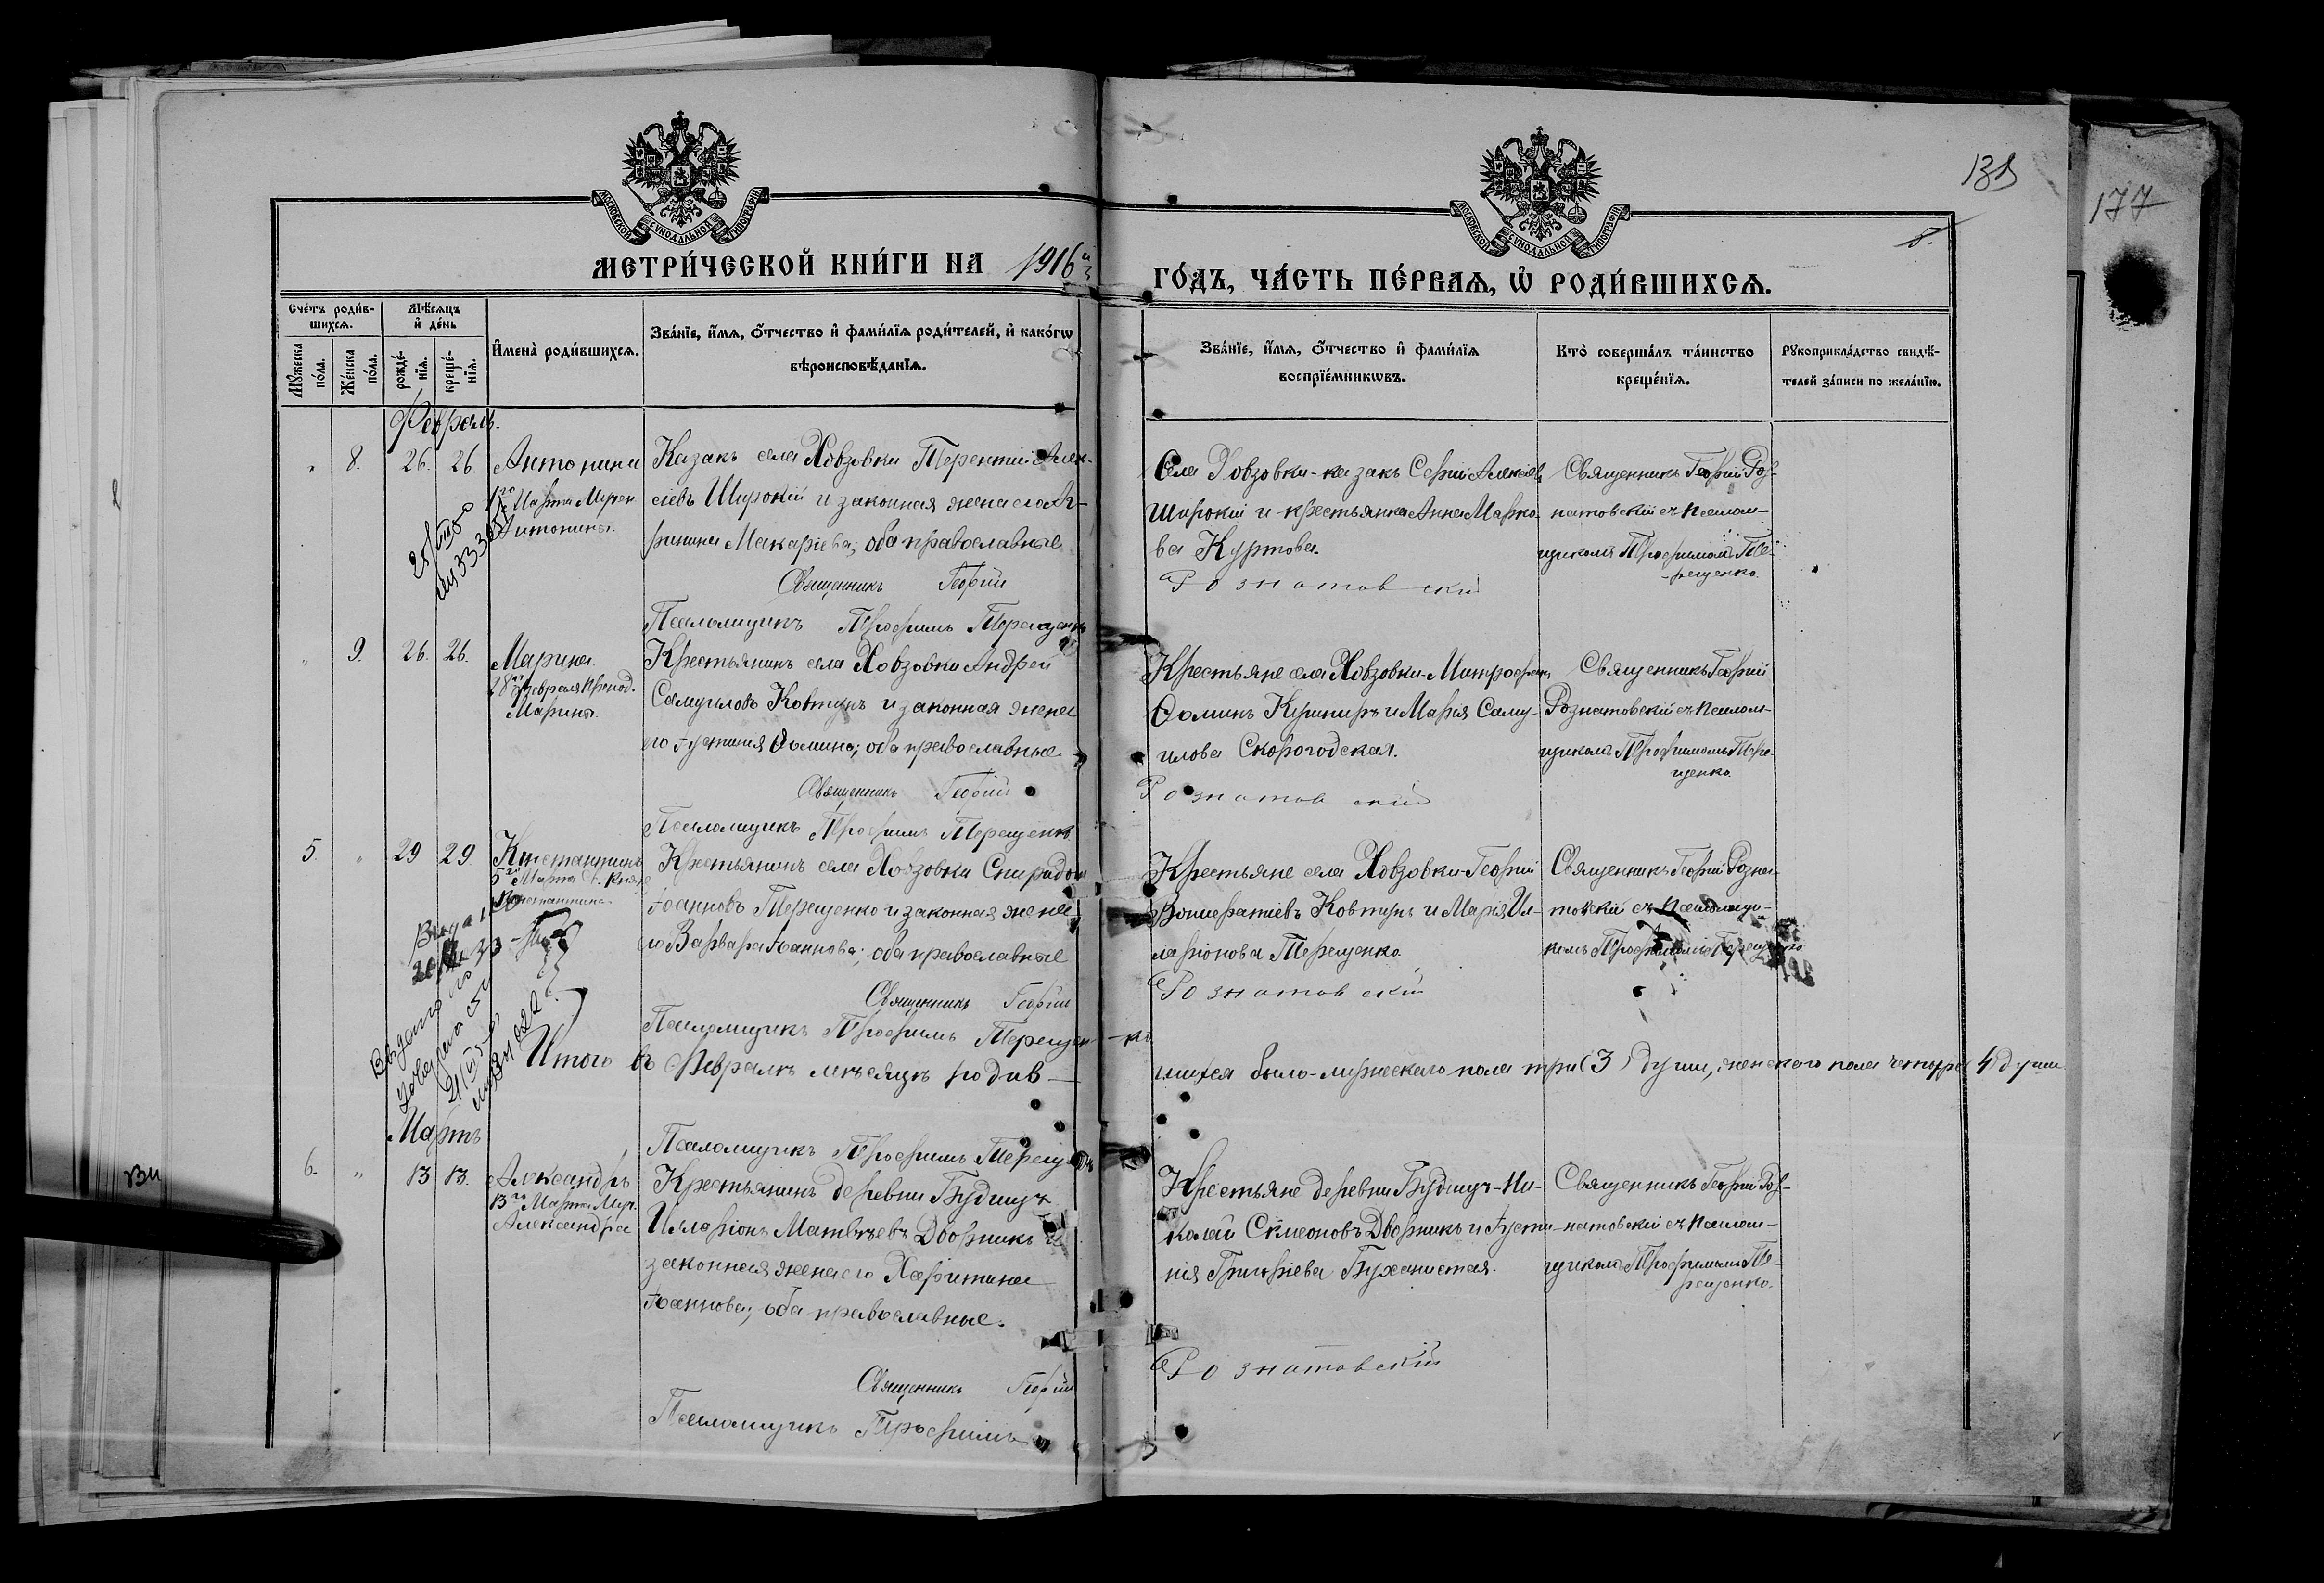 133
177
5.
МОСКОВСКОЙ СѴНОДАЛЬНОЙ ТИПОГРАФІИ
МОСКОВСКОЙ СѴНОДАЛЬНОЙ ТИПОГРАФІИ
МЕТРИ́ЧЕСКОЙ КНИ́ГИ НА 1916й
ГО́ДЪ, ЧА́СТЬ ПЕ́РВАЯ, Ѡ҆ РОДИ́ВШИХСЯ.
Сче́тъ роди́в-
шихся.
Мꙋ́жеска по́ла.
Же́нска по́ла.
Мѣ́сяцъ
и҆ де́нь
рожде́-
нїя.
креще́-
нїя.
И҆мена̀ роди́вшихся.
Зва́нїе, и҆́мя, ѻ҆́тчество и҆ фами́лїя роди́телей, и҆ како́гѡ
вѣроисповѣ́данїя.
Зва́нїе, и҆́мя, ѻ҆́тчество и҆ фами́лїя
воспрїе́мникѡвъ.
Кто̀ соверша́лъ та́инство
креще́нїя.
Рꙋкоприкла́дство свидѣ́-
телей за́писи по жела́нїю.
Февраль.
„ 8. 26. 26. Антонина
1го Марта Мучен.
Антонины.
Казакъ села Ховзовки Терентій Алек-
сіевъ Широкій и законная жена его Аг-
рипина Макаріева; оба православные
Священникъ Георгій
Псаломщикъ Трофимъ Терещенко
Села Ховзовки - казакъ Сергій Алексіевъ
Широкій и крестьянка Анна Марко-
ва Куртова.
Розна­товскій
Священникъ Георгій Роз-
натовскій съ псалом-
щикомъ Трофимомъ Те-
рещенко.
„ 9. 26. 26. Марина
28го Февраля Препод.
Марины.
Крестьянинъ села Ховзовки Андрей
Самуиловъ Ковтунъ и законная жена
его Іустинія Ѳомина; оба православные
Священникъ Георгій
Псаломщикъ Трофимъ Терещенко
Крестьяне села Ховзовки - Митрофанъ
Ѳоминъ Кушниръ и Марія Саму-
илова Скорогодская.
Рознатовскій
Священникъ Георгій
Рознатовскій съ псалом-
щикомъ Трофимомъ Тере-
щенко.
5. „ 29 29 Константинъ
5го Марта Св. Князя
Константина.
Крестьянинъ села Ховзовки Спиридонъ
Іоанновъ Терещенко и законная жена
его Варвара Іоаннова; оба православные
Священникъ Георгій
Псаломщикъ Трофимъ Терещен-ко
Крестьяне села Ховзовки - Георгій
Вонифатіевъ Ковтунъ и Марія Ил-
ларіонова Терещенко.
Рознатовскій
Священникъ Георгій Розна-
товскій съ псаломщи-
комъ Трофимомъ Терещенко
Итого въ Февралѣ мѣсяцѣ родив-
шихся было - мужескаго пола три (3) души, женскаго пола четыре (4) души.
Псаломщикъ Трофимъ Терещенко
Мартъ
6. „ 13 13. Александръ
13го Марта Муч.
Александра
Крестьянинъ деревни Будищъ
Илларіонъ Матвѣевъ Дворникъ и
законная жена его Харитина
Іоаннова; оба православные.
Священникъ Георгій
Псаломщикъ Трофимъ
Крестьяне деревни Будищъ - Ни-
колай Симеоновъ Дворникъ и Іусти-
нія Григоріева Буханистая.
Рознатовскій
Священникъ Георгій Роз-
натовскій съ псалом-
щикомъ Трофимомъ Те-
рещенко.